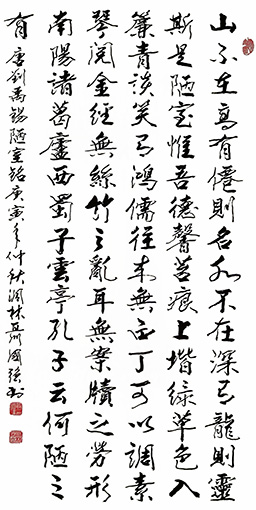 山不在高有僊則名水不在深有龍則靈
斯是陋室惟吾德馨苔痕上堦綠草色入
簾青談笑有鴻儒往來無白丁可以調素
琴閱金經無絲竹之亂耳無案牘之勞形
南陽諸葛廬西蜀子雲亭孔子云何陋之
有 唐劉禹錫陋室銘庚寅年仲秋